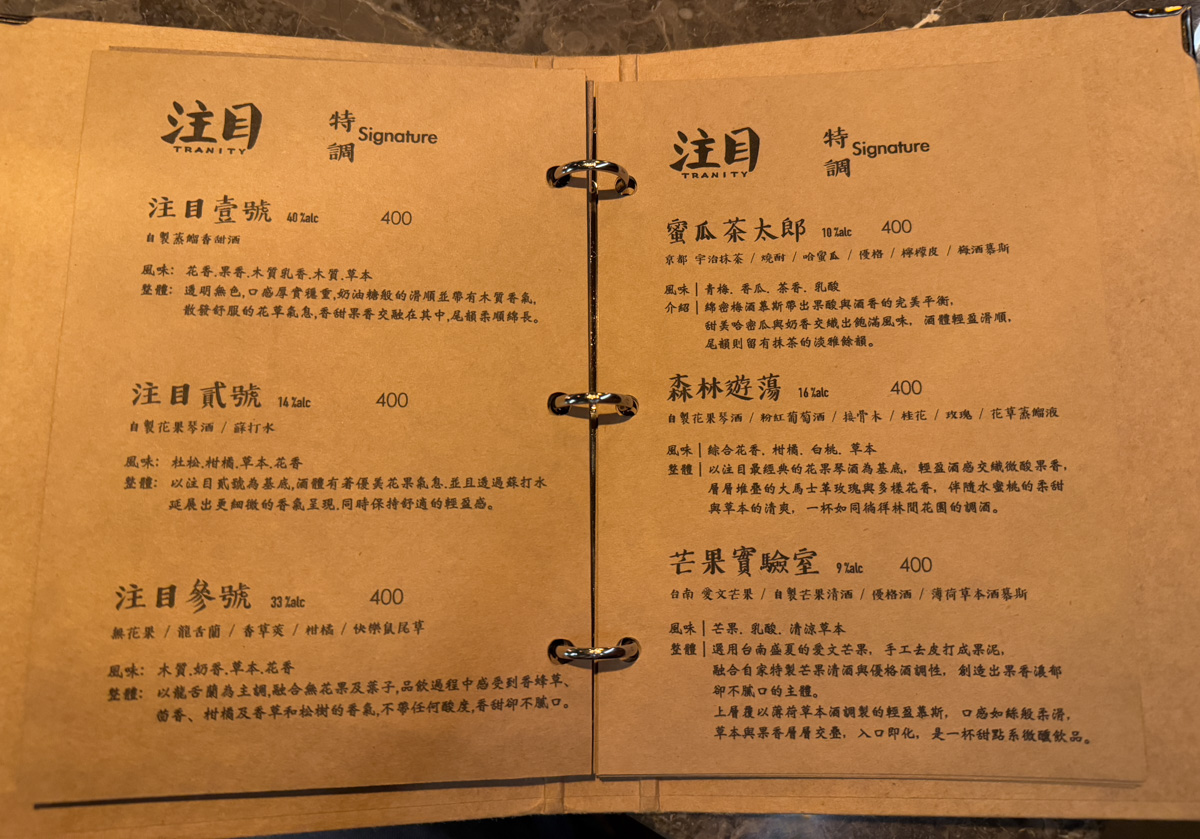 注目
TRANITY
特調 Signature
注目壹號 40%alc 400
自製蒸餾香甜酒
風味: 花香.果香.木質乳香.木質.草本
整體: 透明無色,口感厚實穩重,奶油糖般的滑順並帶有木質香氣,
散發舒服的花草氣息,香甜果香交融在其中,尾韻柔順綿長。
注目貳號 14%alc 400
自製花果琴酒 / 蘇打水
風味: 杜松.柑橘.草本.花香
整體: 以注目貳號為基底,酒體有著優美花果氣息.並且透過蘇打水
延展出更細微的香氣呈現.同時保持舒適的輕盈感。
注目參號 33%alc 400
無花果 / 龍舌蘭 / 香草莢 / 柑橘 / 快樂鼠尾草
風味: 木質.奶香.草本.花香
整體: 以龍舌蘭為主調,融合無花果及葉子,品飲過程中感受到香蜂草、
茴香、柑橘及香草和松樹的香氣,不帶任何酸度,香甜卻不膩口。
注目
TRANITY
特調 Signature
蜜瓜茶太郎 10%alc 400
京都 宇治抹茶 / 燒酎 / 哈蜜瓜 / 優格 / 檸檬皮 / 梅酒慕斯
風味 | 青梅. 香瓜. 茶香. 乳酸
介紹 | 綿密梅酒慕斯帶出果酸與酒香的完美平衡,
甜美哈密瓜與奶香交織出飽滿風味, 酒體輕盈滑順,
尾韻則留有抹茶的淡雅餘韻。
森林遊蕩 16%alc 400
自製花果琴酒 / 粉紅葡萄酒 / 接骨木 / 桂花 / 玫瑰 / 花草蒸餾液
風味 | 綜合花香. 柑橘. 白桃. 草本
整體 | 以注目最經典的花果琴酒為基底, 輕盈酒感交織微酸果香,
層層堆疊的大馬士革玫瑰與多樣花香, 伴隨水蜜桃的柔甜
與草本的清爽, 一杯如同徜徉林間花園的調酒。
芒果實驗室 9%alc 400
台南 愛文芒果 / 自製芒果清酒 / 優格酒 / 薄荷草本酒慕斯
風味 | 芒果. 乳酸. 清涼草本
整體 | 選用台南盛夏的愛文芒果, 手工去皮打成果泥,
融合自家特製芒果清酒與優格酒調性, 創造出果香濃郁
卻不膩口的主體。
上層覆以薄荷草本酒調製的輕盈慕斯, 口感如絲般柔滑,
草本與果香層層交疊, 入口即化, 是一杯甜點系微醺飲品。